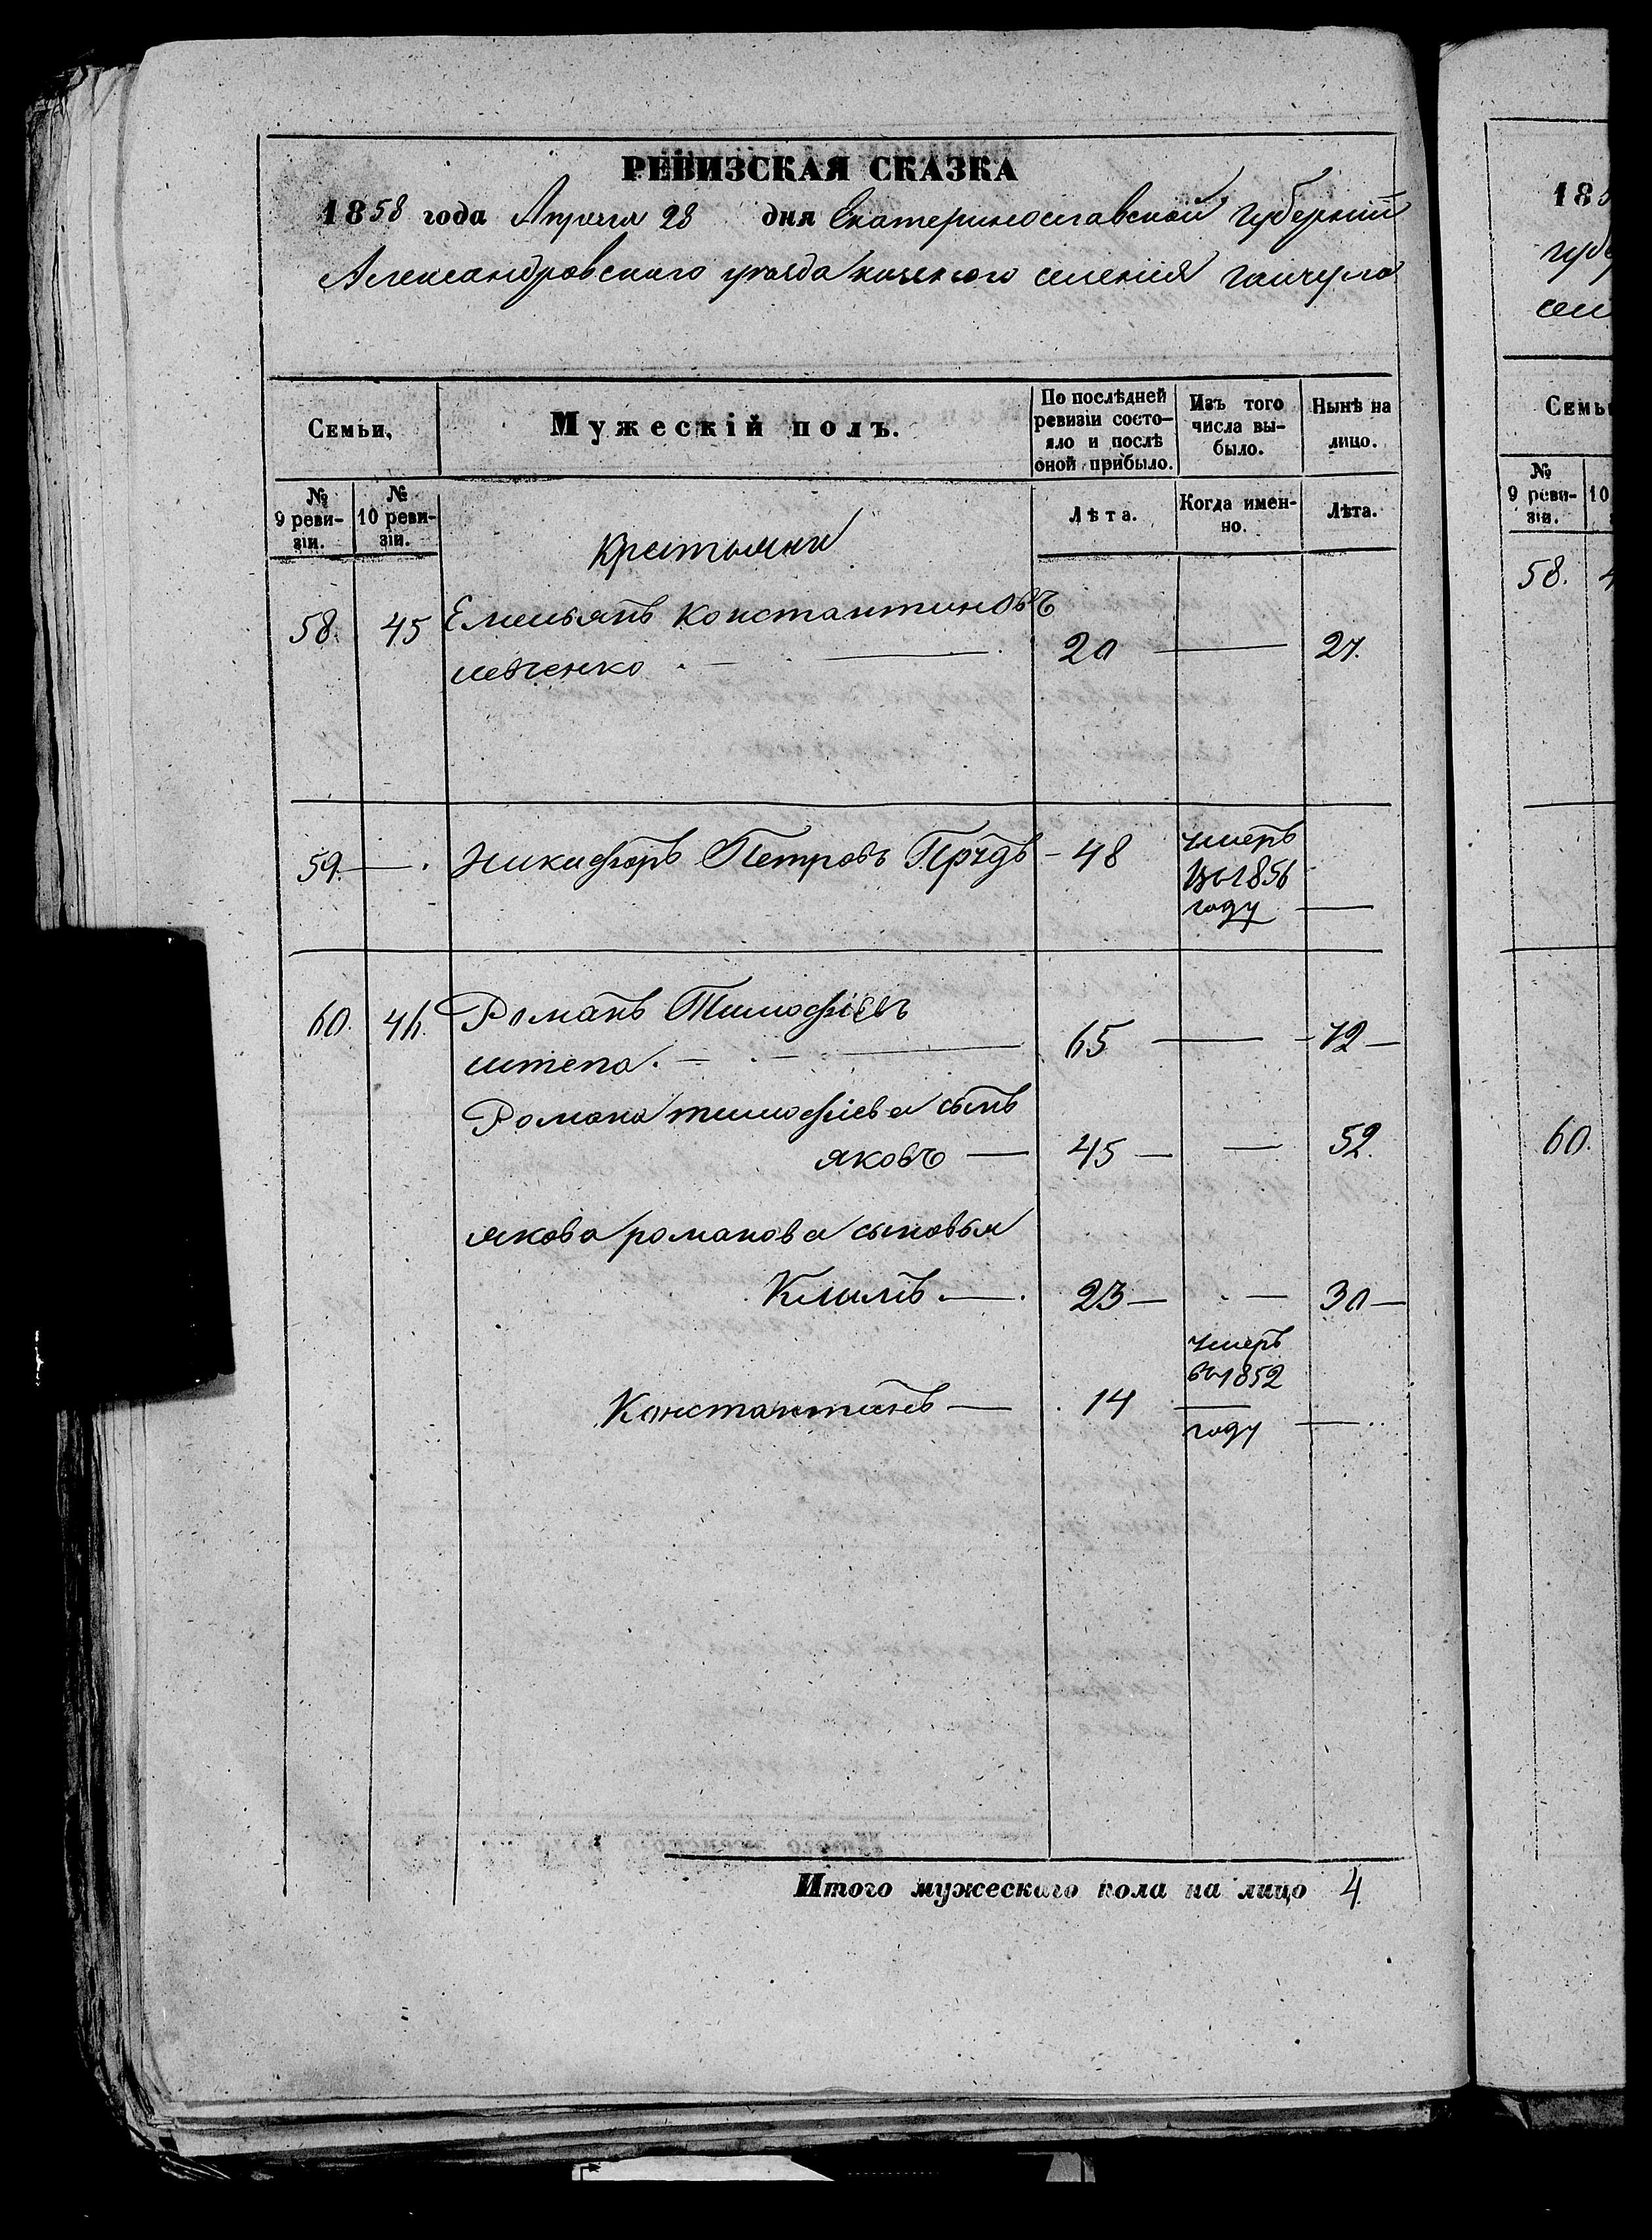 РЕВИЗСКАЯ СКАЗКА
1858 года Апреля 28 дня Екатеринославской Губернии
Александровского уезда казенного селения Гайчула
Семьи,
Мужескій полъ.
По послѣдней ревизіи состо-
яло и послѣ
оной прибыло.
Изъ того
числа вы-
было.
Нынѣ на
лицо.
№
9 реви-
зіи.
№
10 реви-
зіи.
Лѣта.
Когда имен-
но.
Лѣта.
Крестьяни
58. 45 Емельянъ Константиновъ
шевченко 20 — 27.
59. — Никифоръ Петровъ — 48 умеръ
въ 1856
году —
60. 46. Романъ Тимофіевъ
штепа. — 65 — 72 —
Романа тимофіева сынъ
яковъ — 45 — — 52.
якова романова сыновья
Климъ — 23 — — 30 —
умеръ
въ 1852
Константинъ — 14 — году —
Итого мужескаго пола на лицо 4.
185
губе
сел
Семьи
№
9 реви-
зіи.
10
58. 4
60.